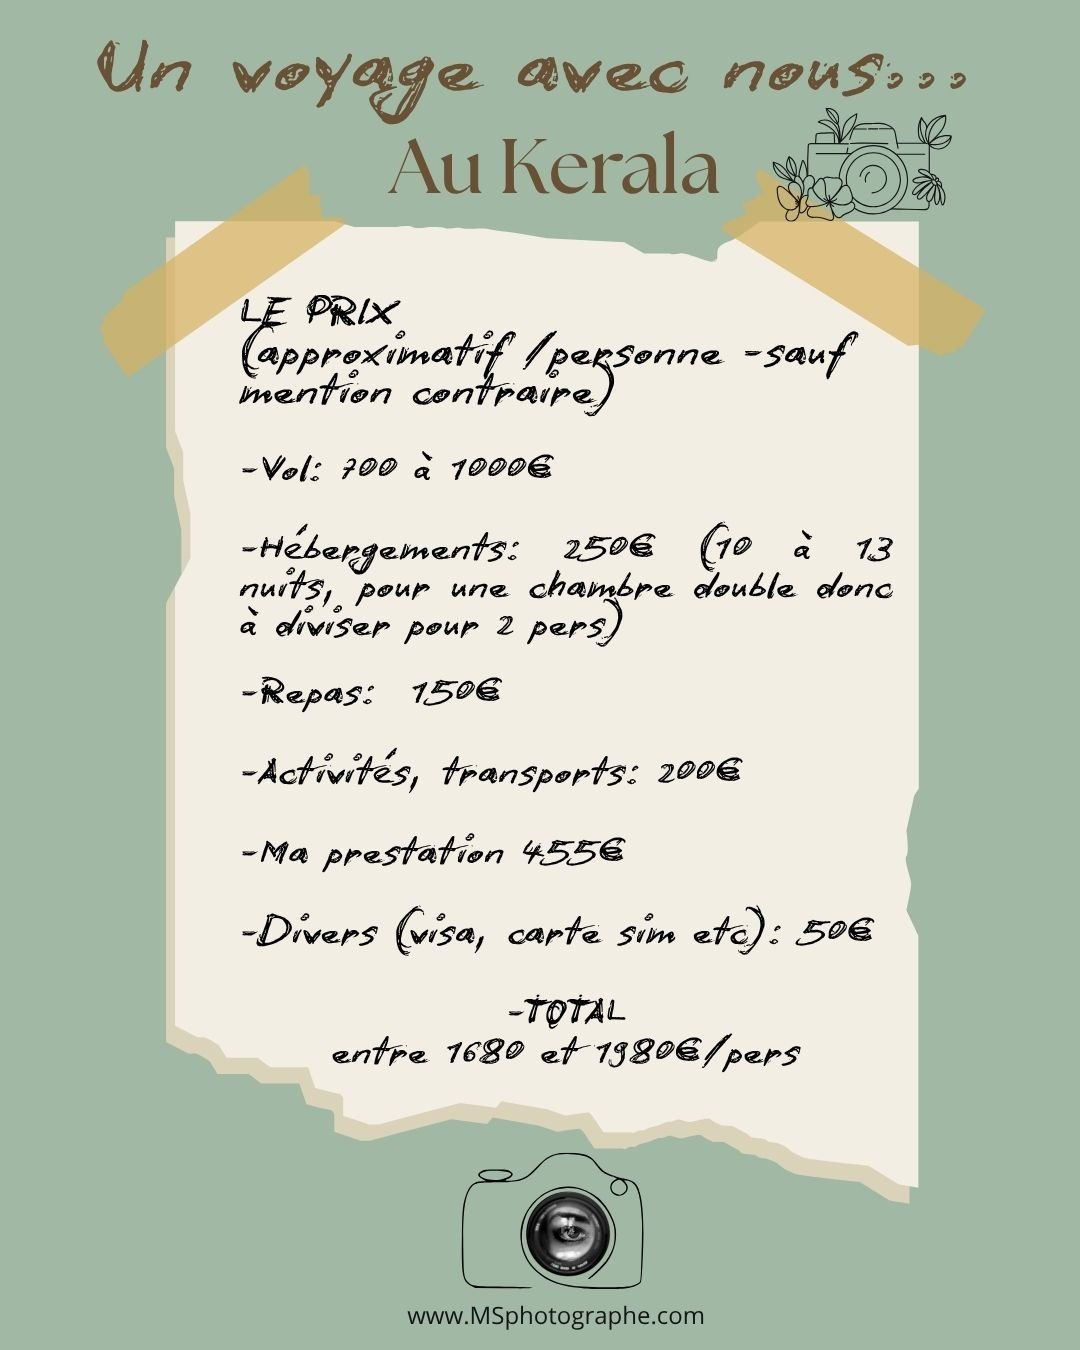 Un voyage avec nous...
Au Kerala
LE PRIX
(approximatif /personne -sauf
mention contraire)
-Vol: 700 à 1000€
-Hébergements: 250€ (10 à 13
nuits, pour une chambre double donc
à diviser pour 2 pers)
-Repas: 150€
-Activités, transports: 200€
-Ma prestation 455€
-Divers (visa, carte sim etc): 50€
-TOTAL
entre 1680 et 1980€/pers
www.MSphotographe.com